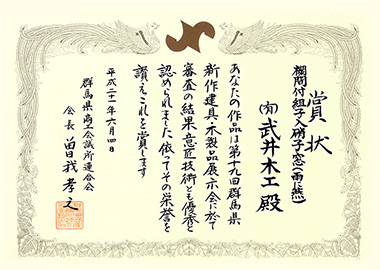 賞状
欄間付組子入硝子窓(雨に燕)
(有)武井木工 殿
あなたの作品は第十九回群馬県
新作建具・木製品展示会に於て
審査の結果意匠技術とも優秀と
認められました依ってその栄誉を
讃えこれを賞します
平成二十一年六月四日
群馬県商工会議所連合会
会長 曽我孝之